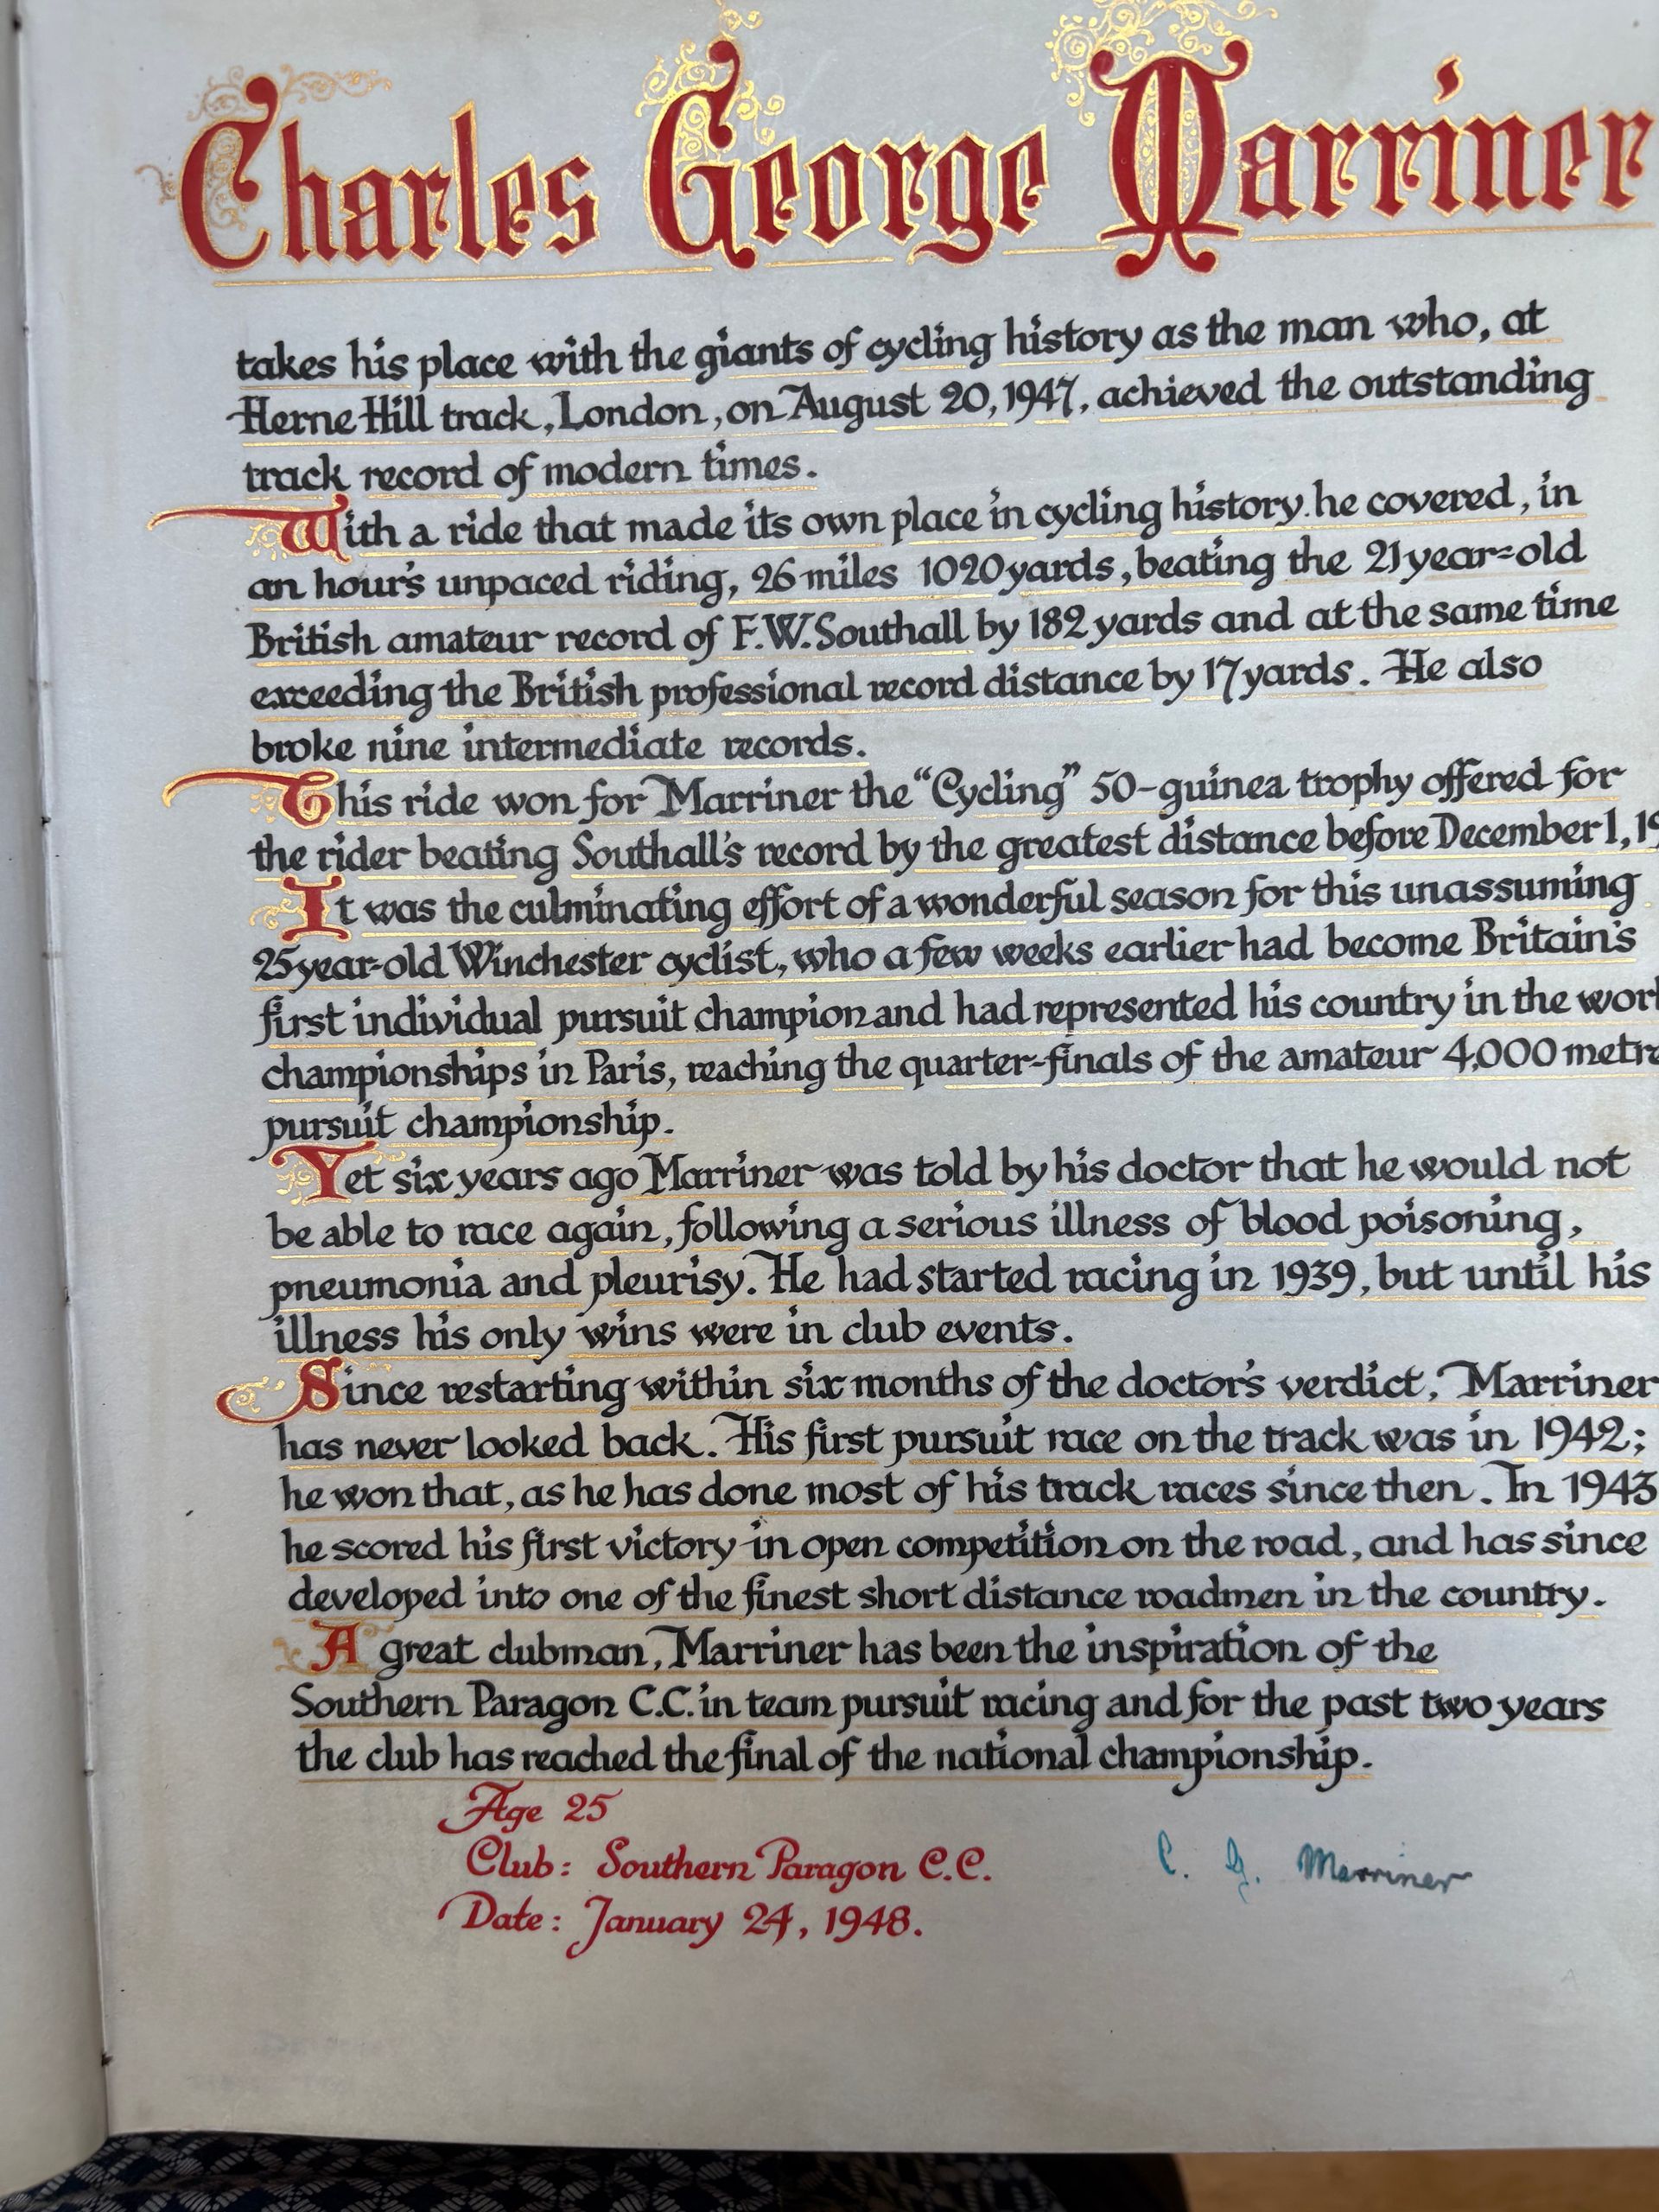 Charles George Marriner
takes his place with the giants of cycling history as the man who, at
Herne Hill track, London, on August 20, 1947, achieved the outstanding
track record of modern times.
With a ride that made its own place in cycling history he covered, in
an hour's unpaced riding, 26 miles 1020 yards, beating the 21 year-old
British amateur record of F.W. Southall by 182 yards and at the same time
exceeding the British professional record distance by 17 yards. He also
broke nine intermediate records.
This ride won for Marriner the "Cycling" 50-guinea trophy offered for
the rider beating Southall's record by the greatest distance before December 1, 19
It was the culminating effort of a wonderful season for this unassuming
25 year-old Winchester cyclist, who a few weeks earlier had become Britain's
first individual pursuit champion and had represented his country in the worl
championships in Paris, reaching the quarter-finals of the amateur 4,000 metre
pursuit championship.
Yet six years ago Marriner was told by his doctor that he would not
be able to race again, following a serious illness of blood poisoning,
pneumonia and pleurisy. He had started racing in 1939, but until his
illness his only wins were in club events.
Since restarting within six months of the doctor's verdict, Marriner
has never looked back. His first pursuit race on the track was in 1942;
he won that, as he has done most of his track races since then. In 1943
he scored his first victory in open competition on the road, and has since
developed into one of the finest short distance roadmen in the country.
A great clubman, Marriner has been the inspiration of the
Southern Paragon C.C. in team pursuit racing and for the past two years
the club has reached the final of the national championship.
Age 25
Club: Southern Paragon C.C.
C. G. Marriner
Date: January 24, 1948.